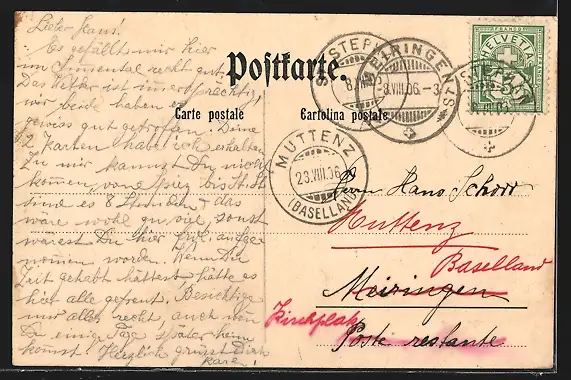 Lieber Hans!
Es gefällt mir hier
im Simmental recht gut.
Das Wetter ist immer prächtig,
wir beide haben es
gewiss gut getroffen. Deine
2 Karten habe ich erhalten
Zu mir kannst Du nicht
kommen, von Spiez bis St. St.
sind es 8 Stunden & das
wäre wohl zu viel, sonst
wärest Du hier
worden. Wenn Du
Zeit gehabt hättest, hätte es
hier alle gefreut. Besichtige
nur alles recht, auch wenn
Du einige Tage später heim
kommst. Herzlich grüsst Dich
Postkarte.
Carte postale
Cartolina postale
ST. STEPHAN
MEIRINGEN
-8.VIII.06.-3
HELVETIA
ST. STEPHAN
MUTTENZ
23.VIII.06
(BASELLAND)
Herrn Hans Schorr
Muttenz
Baselland
Meiringen
Kirchplatz
Poste restante